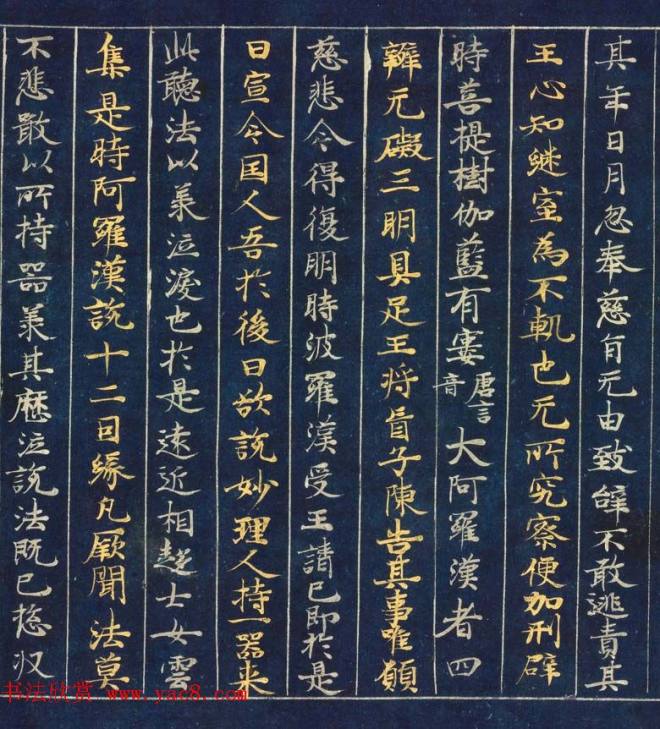 其年日月忽奉慈旨无由致辞不敢逃责其
王心知継室為不軌也无所究察便加刑辟
時菩提樹伽藍有寠唐言音大阿羅漢者四
辯无礙三明具足王将盲子陳告其事唯願
慈悲令得復明時彼羅漢受王請已即於是
日宣令国人吾於後日欲說妙理人持一器来
此聽法以承泣淚也於是遠近相趍士女雲
集是時阿羅漢說十二因緣凡厥聞法莫
不悲敢以所持器承其瀝泣說法既已揔収
书法欣赏 www.yac8.com